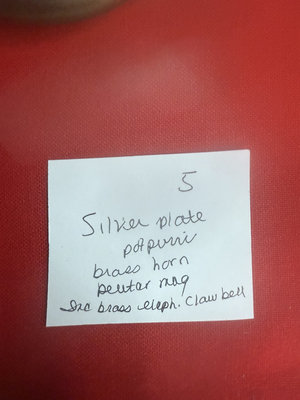 5
Silver plate
potpurri
brass horn
peuter mug
brass eleph. Claw bell